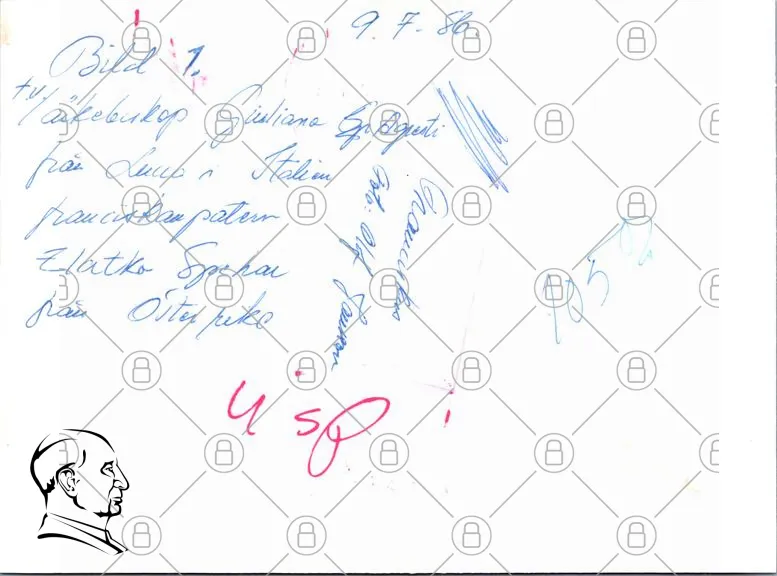 9.7.86.
Bild 1.
t.v. Ärkebiskop Giuliano Agresti
från Lucca i Italien
franciskanpatern
Zlatko Spehar
från Österrike
Foto: Olof
4 sp